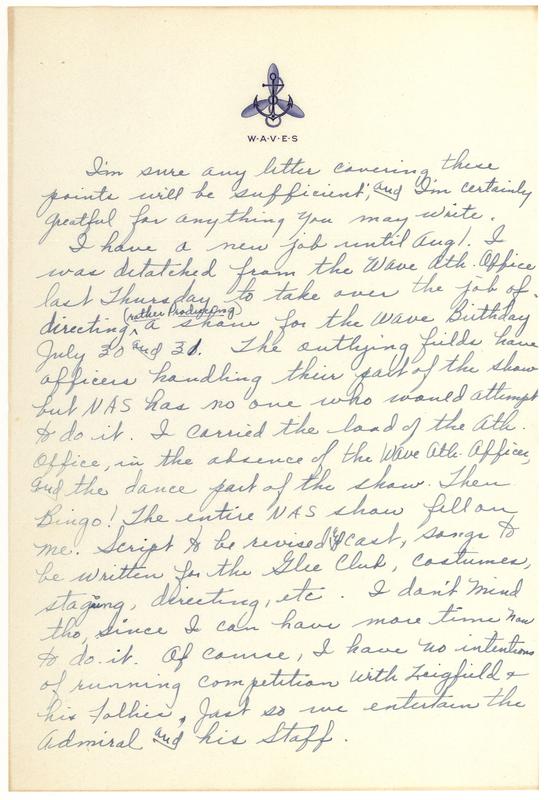 W·A·V·E·S
I'm sure any letter covering these
points will be sufficient, and I'm certainly
greatful for anything you may write.
I have a new job until Aug 1. I
was detatched from the Wave Ath. Office
last Thursday to take over the job of
(rather Producing)
directing a show for the Wave Birthday
July 30 and 31. The outlying fields have
officers handling their part of the show
but NAS has no one who would attempt
to do it. I carried the load of the Ath.
Office, in the absence of the Wave Ath. Officer,
and the dance part of the show. Then
Bingo! The entire NAS show fell on
me. Script to be revised & cast, songs to
be written for the Glee Club, costumes,
staging, directing, etc. I don't mind
tho, since I can have more time now
to do it. Of course, I have no intentions
of running competition with Zeigfield &
his Follies, Just so we entertain the
Admiral and his Staff.